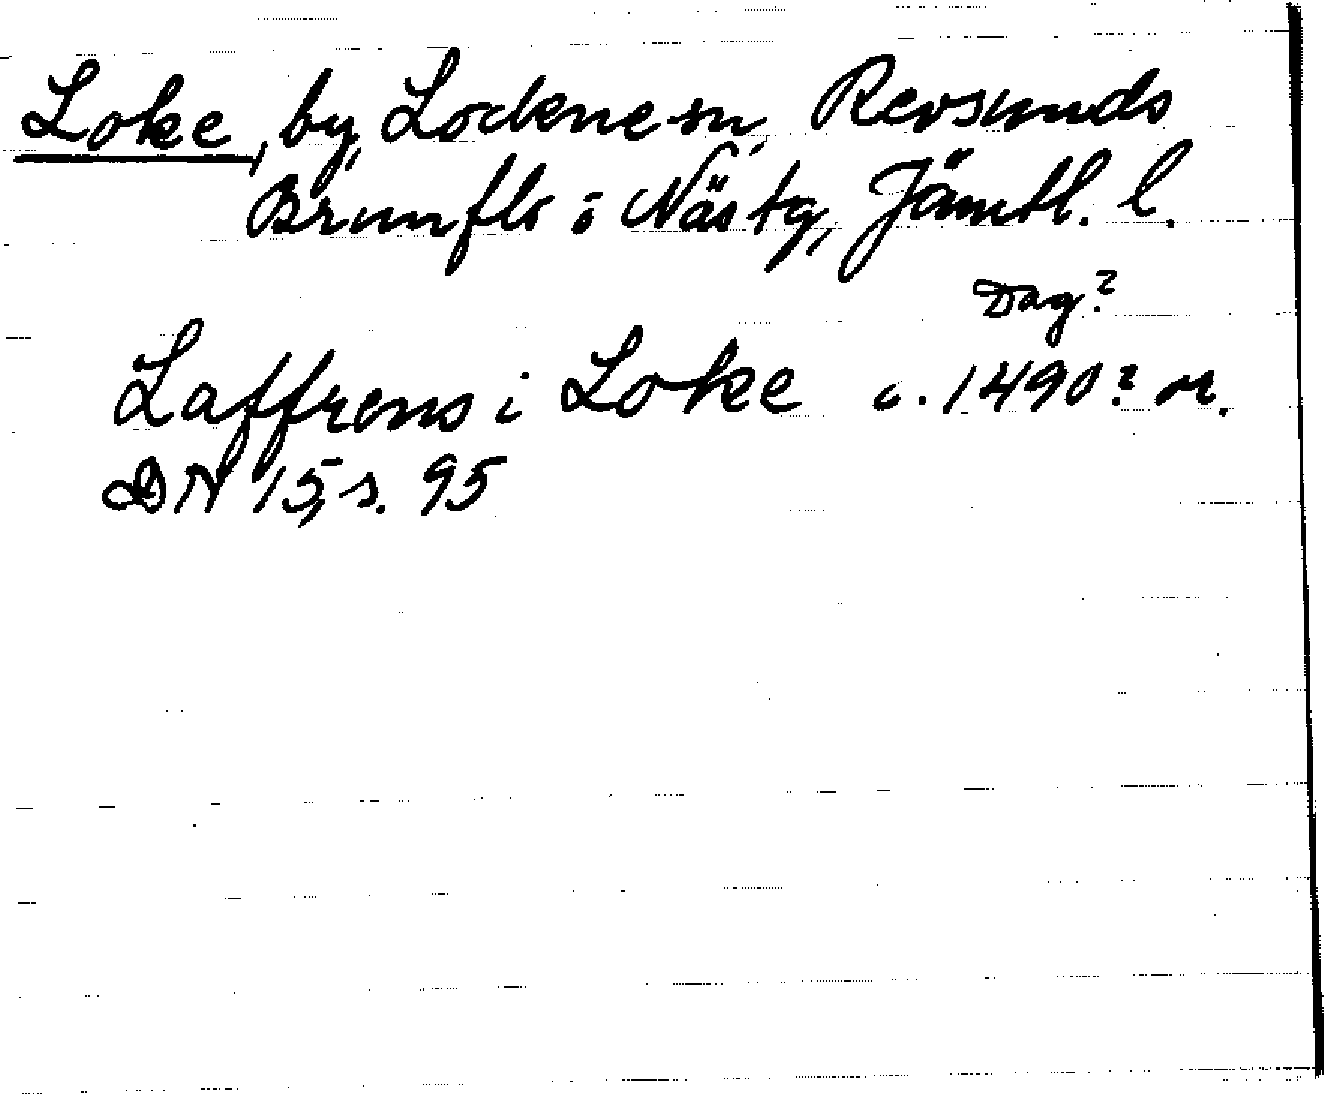 Loke, by, Lockne sn, Revsunds
Brunflo o Näs tg, Jämtl. l.
Dag?
Laffrens i Loke c. 1490? or.
DN 15, s. 95